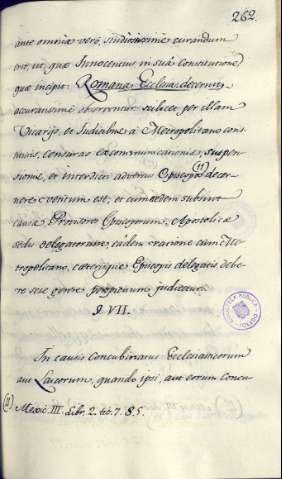 262.
ante omnia vero, studiosissime curandum
erit, ut quæ Innocentius in suâ Constitutione
quæ incipit: Romanæ Ecclesiæ decernit,
accuratissime observentur scilicet per illam
Vicarijs, et Judicibus à Metropolitano cons
titutis, censuras excommunicationis, suspen
sionis, et interdicti adversus Episcopos (11) decer
nere vetitum est, et cum eadem subsint
causæ Provisores Episcoporum, Apostolicæ
sedis delegatorum, eadem ratione cum Me
tropolitano, cæterisque Episcopis delegatis debe
re se gerere propositum judicetur.
§. VII.
In causis Concubinatus Ecclesiasticorum
aut Laicorum, quando ipsi, aut eorum Concu
(11) Mexic. III. Libr. 2. tit. 7. §. 5.
BIBLIOTECA PUBLICA
TOLEDO